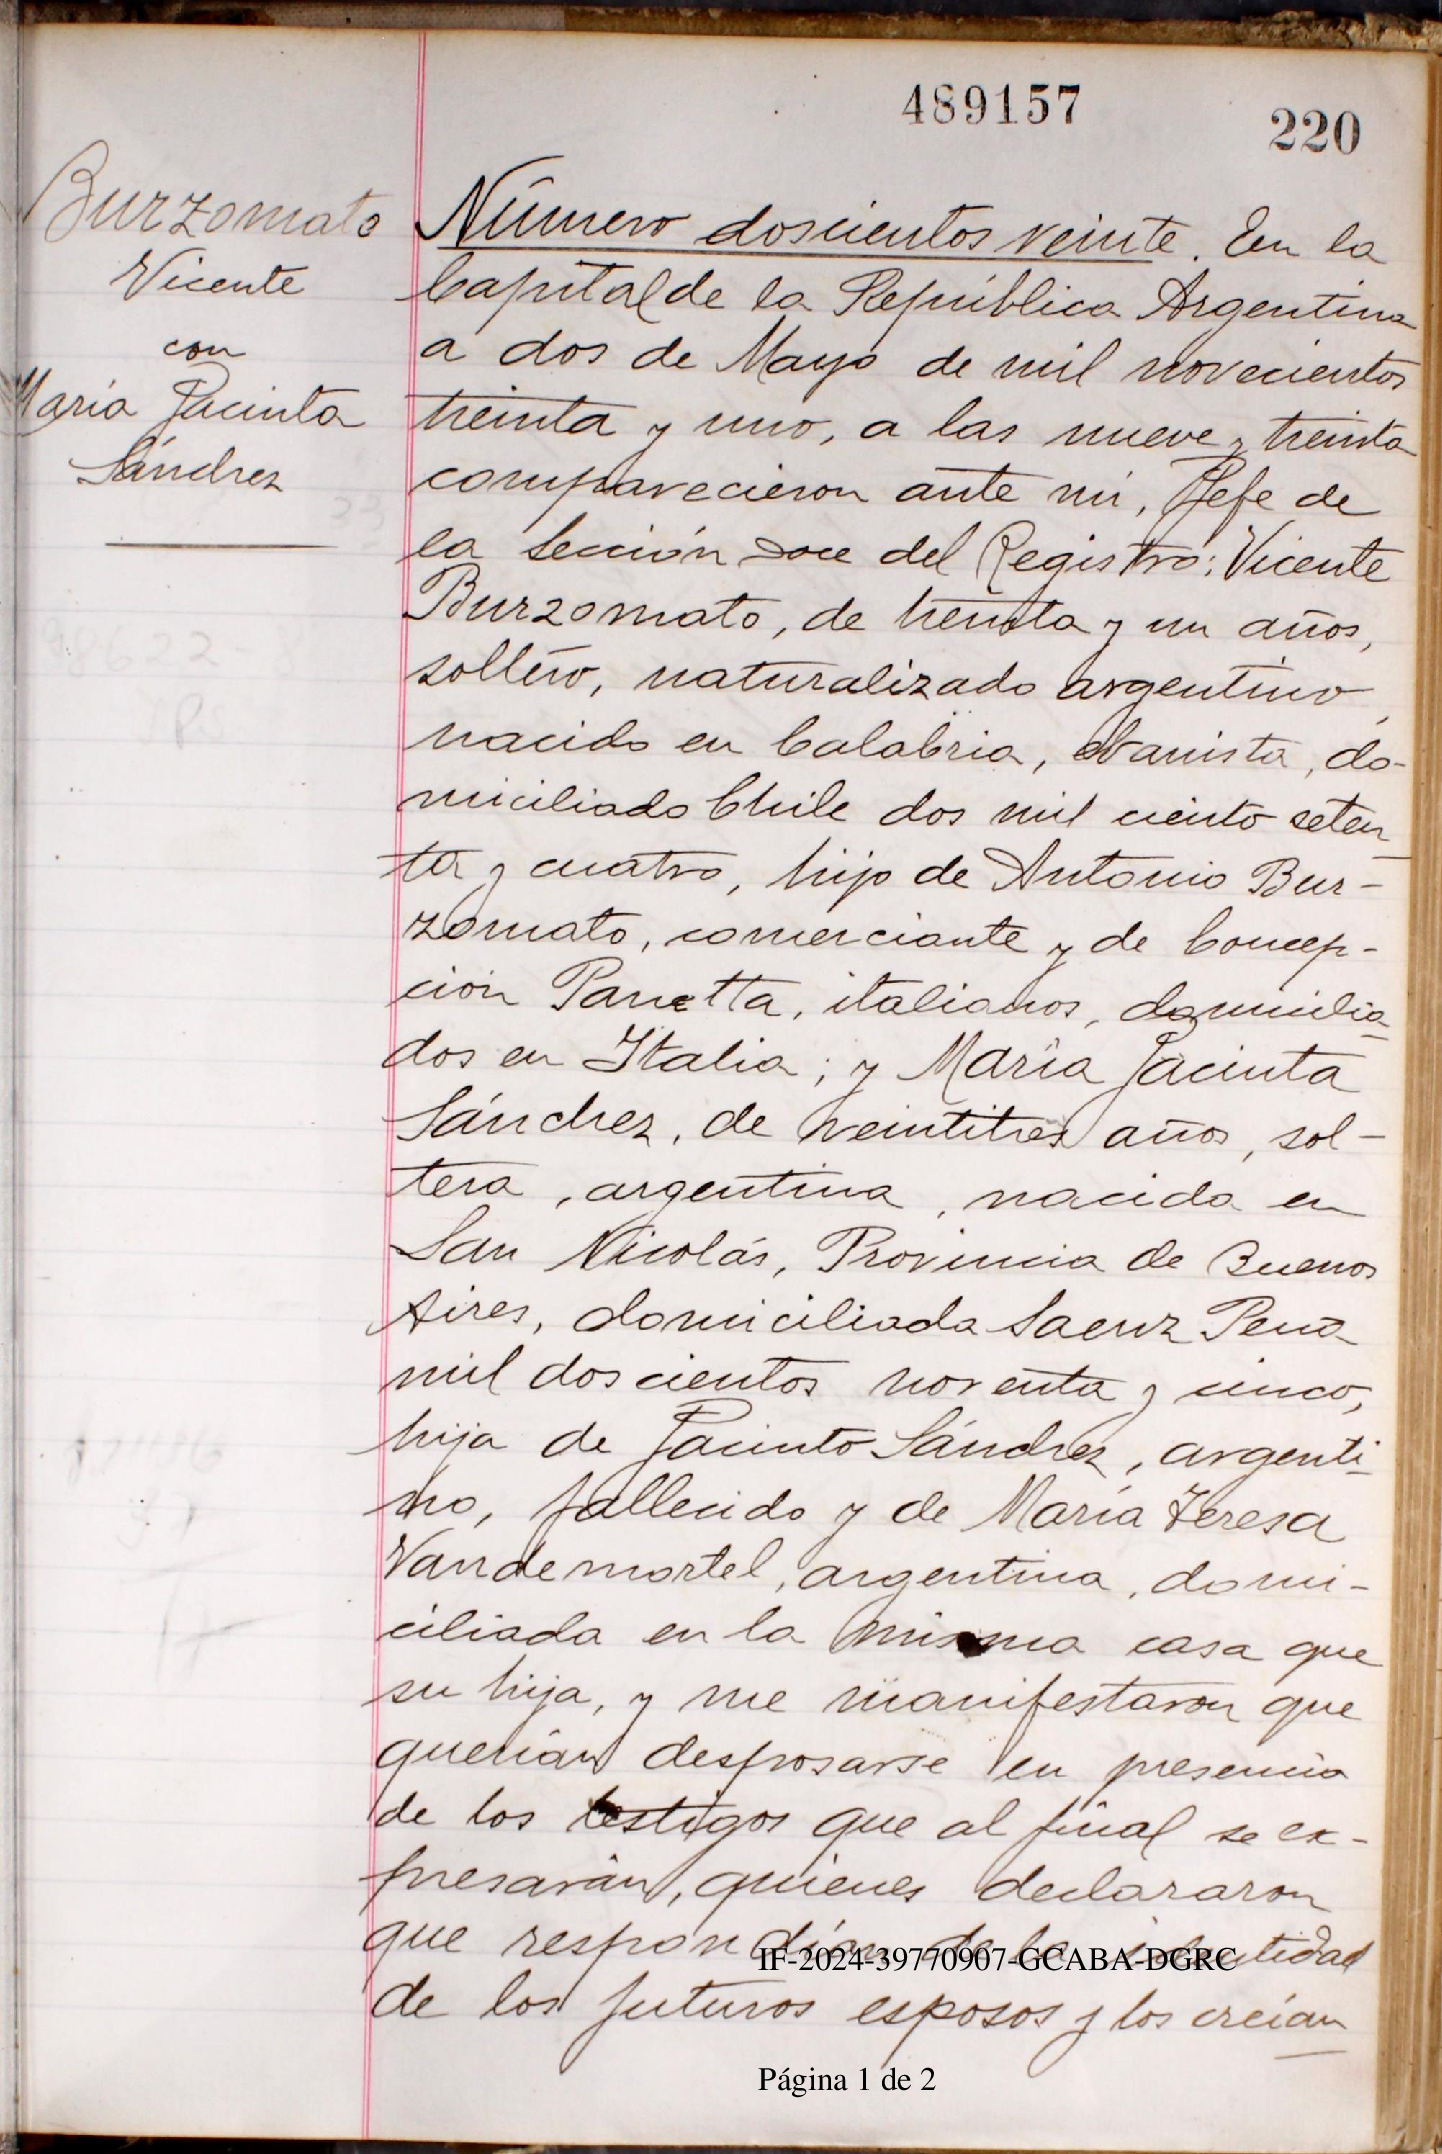 489157
220
Burzomato
Vicente
con
María Jacinta
Sánchez
Número doscientos veinte. En la
Capital de la República Argentina
a dos de Mayo de mil novecientos
treinta y uno, a las nueve y treinta
comparecieron ante mí, Jefe de
la Sección doce del Registro: Vicente
Burzomato, de treinta y un años,
soltero, naturalizado argentino,
nacido en Calabria, ebanista, do-
miciliado Chile dos mil ciento seten
ta y cuatro, hijo de Antonio Bur-
zomato, comerciante y de Concep-
ción Panetta, italianos, domicilia-
dos en Italia; y María Jacinta
Sánchez, de veintitres años, sol-
tera, argentina, nacida en
San Nicolás, Provincia de Buenos
Aires, domiciliada Saenz Pena
mil doscientos noventa y cinco,
hija de Jacinto Sánchez, argenti-
no, fallecido y de María Teresa
Vandemortel, argentina, domi-
ciliada en la misma casa que
su hija, y me manifestaron que
querían desposarse en presencia
de los testigos que al final se ex-
presarán, quienes declararon
que respondían de la identidad
de los futuros esposos y los creían
IF-2024-39770907-GCABA-DGRC
Página 1 de 2